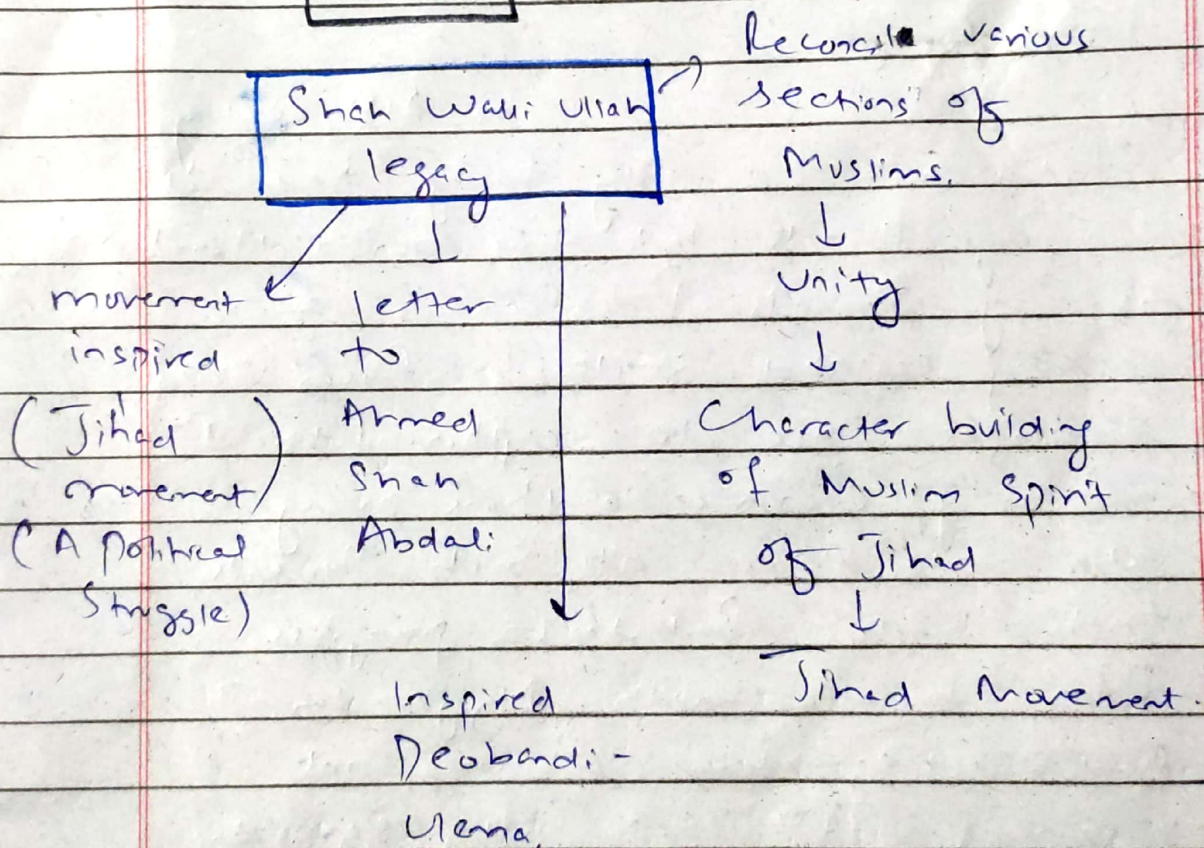 Shah Wali Ullah
legacy
Reconcile various
sections of
Muslims.
Unity
Character building
of Muslim Spirit
of Jihad
Jihad Movement.
movement
inspired
(Jihad
movement)
(A Political
Struggle)
letter
to
Ahmed
Shah
Abdali
Inspired
Deobandi-
Ulema